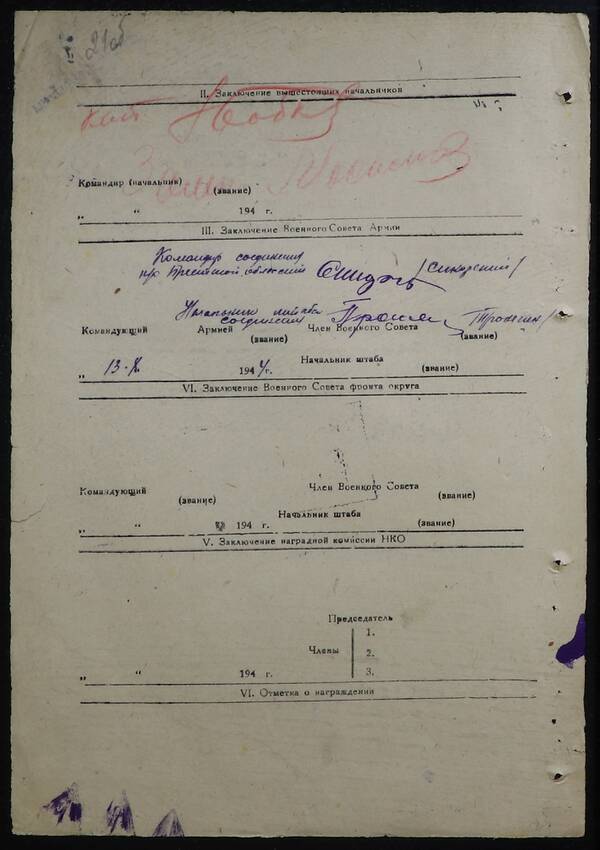 II. Заключение вышестоящих начальников
Командир (начальник)
(звание)
„ “ 194 г.
III. Заключение Военного Совета Армии
Командир соединения
пр Брестской области /Сикорский/
Начальник штаба
соединения
Командующий Армией Член Военного Совета
(звание) (звание)
Начальник штаба
„ 13.X 1944г. (звание)
VI. Заключение Военного Совета фронта округа
Командующий Член Военного Совета
(звание) (звание)
Начальник штаба
„ “ 194 г. (звание)
V. Заключение наградной комиссии НКО
Председатель
Члены 1.
2.
„ “ 194 г. 3.
VI. Отметка о награждении